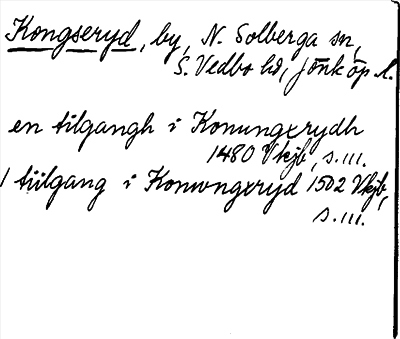 Kongseryd, by, N. Solberga sn,
S. Vedbo hd, Jönköp. l.
en tilgangh i Konungxrydh
1480 Vkjb, s. 111.
1 tiilgang i Konwngxryd 1502 Vkjb,
s. 111.